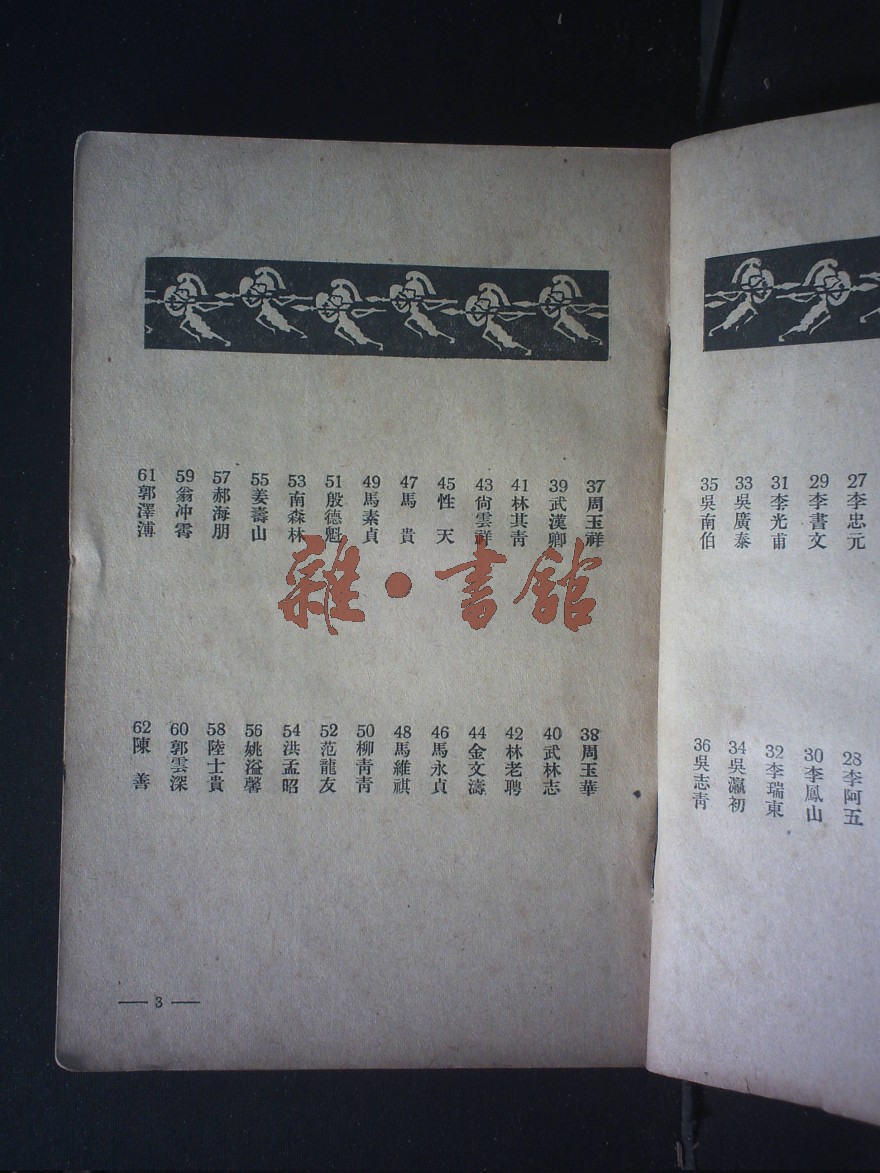 27 李忠元
28 李阿五
29 李書文
30 李鳳山
31 李光甫
32 李瑞東
33 吳廣泰
34 吳瀛初
35 吳南伯
36 吳志靑
37 周玉祥
38 周玉華
39 武漢卿
40 武林志
41 林其靑
42 林老聘
43 尙雲祥
44 金文濤
45 性天
46 馬永貞
47 馬貴
48 馬維祺
49 馬素貞
50 柳靑靑
51 殷德魁
52 范龍友
53 南森林
54 洪孟昭
55 姜壽山
56 姚溢馨
57 郝海朋
58 陸士貴
59 翁冲霄
60 郭雲深
61 郭澤溥
62 陳善
雜·書館
— 3 —